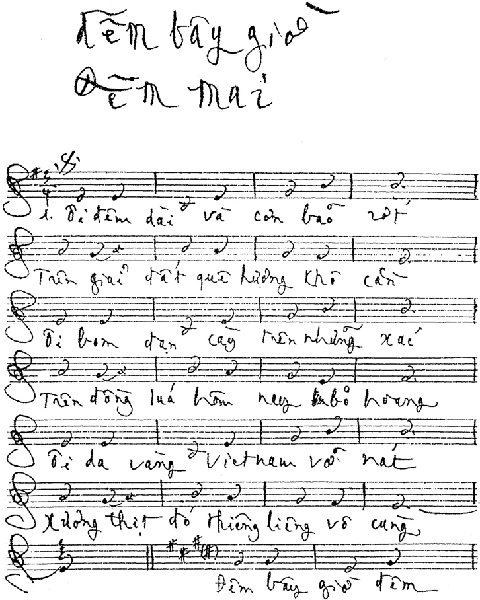 đêm bây giờ
Đêm mai
1. Ôi đêm dài và cơn bão rớt
Trên giải đất quê hương khô cằn
Ôi bom đạn cày trên những xác
Trên đồng lúa hôm nay bỏ hoang
Ôi da vàng Vietnam vỡ nát
Xương thịt đó thiêng liêng vô cùng
Đêm bây giờ đêm